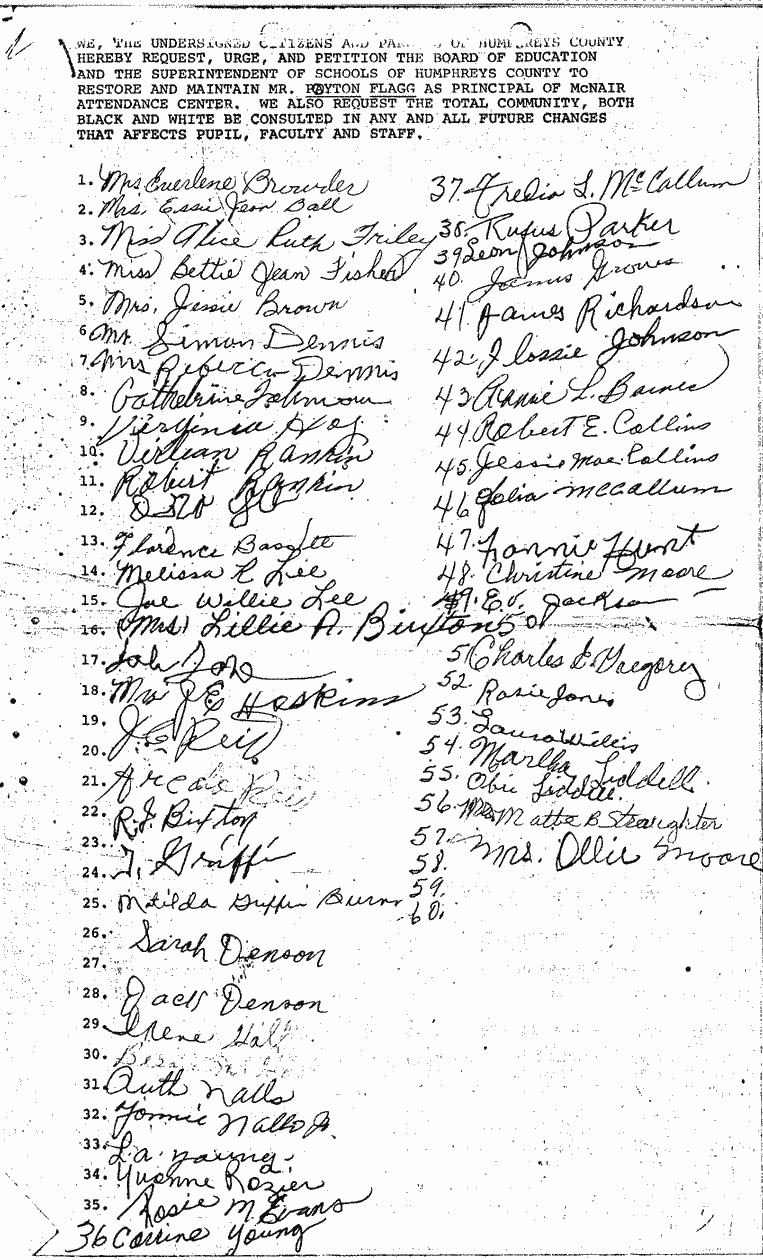 WE, THE UNDERSIGNED CITIZENS AND OF HUMPHREYS COUNTY
HEREBY REQUEST, URGE, AND PETITION THE BOARD OF EDUCATION
AND THE SUPERINTENDENT OF SCHOOLS OF HUMPHREYS COUNTY TO
RESTORE AND MAINTAIN MR. PAYTON FLAGG AS PRINCIPAL OF McNAIR
ATTENDANCE CENTER. WE ALSO REQUEST THE TOTAL COMMUNITY, BOTH
BLACK AND WHITE BE CONSULTED IN ANY AND ALL FUTURE CHANGES
THAT AFFECTS PUPIL, FACULTY AND STAFF.
1. Mrs Everlene Browder
2. Mrs. Essie Jean Ball
3. Miss Alice Ruth Friley
4. Miss Bettie Jean Fisher
5. Mrs. Jessie Brown
6. Mr. Simon Dennis
7. Mrs Rebecca Dennis
8. Catherine Johnson
9. Virginia
10. Verlean Rankin
11. Robert Rankin
12.
13. Florence Bassett
14. Melissa R Lee
15. Joe Willie Lee
16. (Mrs) Lillie A. Buxton
17.
18. Mrs J E Hoskins
19. J. C. Reid
20.
21. Arcola
22. R. J. Buxton
23.
24. T. Griffin
25. Matilda Griffin Burns
26. Sarah Denson
27.
28. Jack Denson
29. Irene Hall
30.
31. Ruth Nalls
32. Tommie Nalls Jr.
33. L. a. young.
34. Yvonne Rozier
35. Rosie M Evans
36 Corrine Young
37. Fredia L. McCallum
38. Rufus Parker
39 Leon Johnson
40. James Groves
41. James Richardson
42. Flossie Johnson
43. Annie L. Baines
44. Robert E. Collins
45. Jessie Mae Collins
46. Julia McCallum
47. Fannie Hunt
48. Christine Moore
49. E. v. Jackson
50
51 Charles E Gregory
52. Rosie Jones
53. Laura Willis
54. Martha Liddell
55. Obie Liddell.
56. Mrs Matta B Straighter
57. Mrs. Ollie Moore
58.
59.
60.